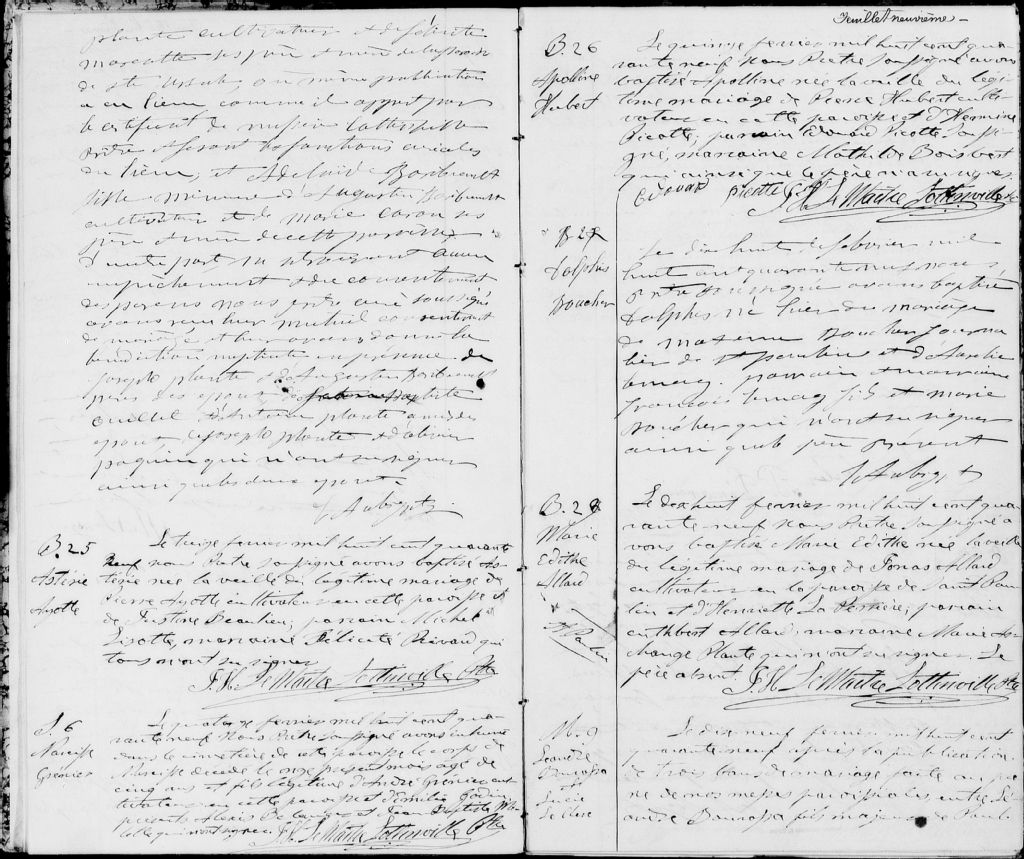 plante cultivateur et de
marcotte ses père et mère
de ste Ursule, ou même publication
a eu lieu, comme il appert par
le certificat de messire
du lieu, et Adelaide
fille mineure d'Augustin
cultivateur et de marie caron ses
père et mère de cette paroisse
d'autre part, ne
empêchement et du consentement
des parens nous prêtre curé soussigné
avons reçu leur mutuel consentement
de mariage et leur avons donné la
bénédiction nuptiale en présence de
joseph plante et d'Augustin
père des epoux
plante amis des
epoux, joseph plante et d'olivier
paquin qui n'ont su signer
ainsi que les deux epoux
B. 25
Astérie
Ayotte
Le treize fevrier mil huit cent quarante
neuf nous Prêtre soussigné avons baptisé As-
térie née la veille du légitime mariage de
Pierre Ayotte cultivateur en cette paroisse et
de Justine Beaulieu; parrain Michel
Lizotte, marraine Félicité Rivard qui
tous n'ont su signer
F. X. Le Maitre Lottinville Ptre
S. 6
Narcisse
Grenier
Le quatorze fevrier mil huit cent qua-
rante neuf Nous Prêtre soussigné avons inhumé
dans le cimetière de cette paroisse le corps de
Narcisse décédé le onze présent mois agé de
cinq ans et fils légitime d'André Grenier cul
tivateur en cette paroisse et d'Emilie Godin
présents Alexis Belanger et Jean Baptiste
qui n'ont su signer. F. X. Le Maitre Lottinville Ptre
Feuillet neuvième
B. 26
Apolline
Hubert
Le quinze fevrier mil huit cent qua-
rante neuf Nous Prêtre soussigné avons
baptisé Apolline née la veille du légi-
time mariage de Pierre Hubert culti-
vateur en cette paroisse et d'Hermine
Picotte; parrain Edouard Picotte soussi-
gné, marraine Mathilde Boisvert
qui ainsi que le père n'a su signer.
Edouar Picotte F. X. Le Maitre Lottinville Ptre
B 27
Dolphis
Boucher
Le dix huit de fevrier mil
huit cent quarante neuf nous
prêtre soussigné avons baptisé
Dolphis né hier du mariage
de maxime Boucher journa
lier de st paulin et d'Aurelie
lemay. parrain et marraine
françois lemay fils et marie
boucher qui n'ont su signer
ainsi que le père présent
B. 28
Marie
Edithe
Allard
Le dix huit fevrier mil huit cent qua-
rante-neuf Nous Prêtre soussigné a
vons baptisé Marie Edithe née la veille
du légitime mariage de Jonas Allard
cultivateur en la paroisse de Saint Pau
lin et d'Henriette La Perrière; parrain
Cuthbert Allard; marraine Marie Ar-
change Plante qui n'ont su signer. Le
père absent. F. X. Le Maitre Lottinville Ptre
M. 9
Le dix neuf fevrier mil huit cent
quarante neuf après la publication
de trois bans de mariage faite au prô
ne de nos messes paroissiales, entre Lé-
andre fils majeur de Paul